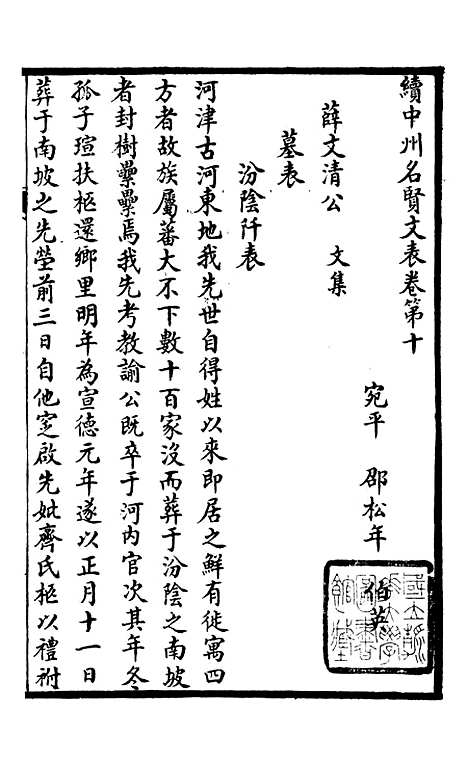 續中州名賢文表卷第十
宛平 邵松年 伯英
薛文清公 文集
墓表
汾陰阡表
河津古河東地我先世自得姓以來即居之鮮有徙寓四
方者故族屬蕃大不下數十百家沒而葬于汾陰之南坡
者封樹纍纍焉我先考教諭公既卒于河內官次其年冬
孤子瑄扶柩還鄉里明年為宣德元年遂以正月十一日
葬于南坡之先塋前三日自他窆啟先妣齊氏柩以禮祔